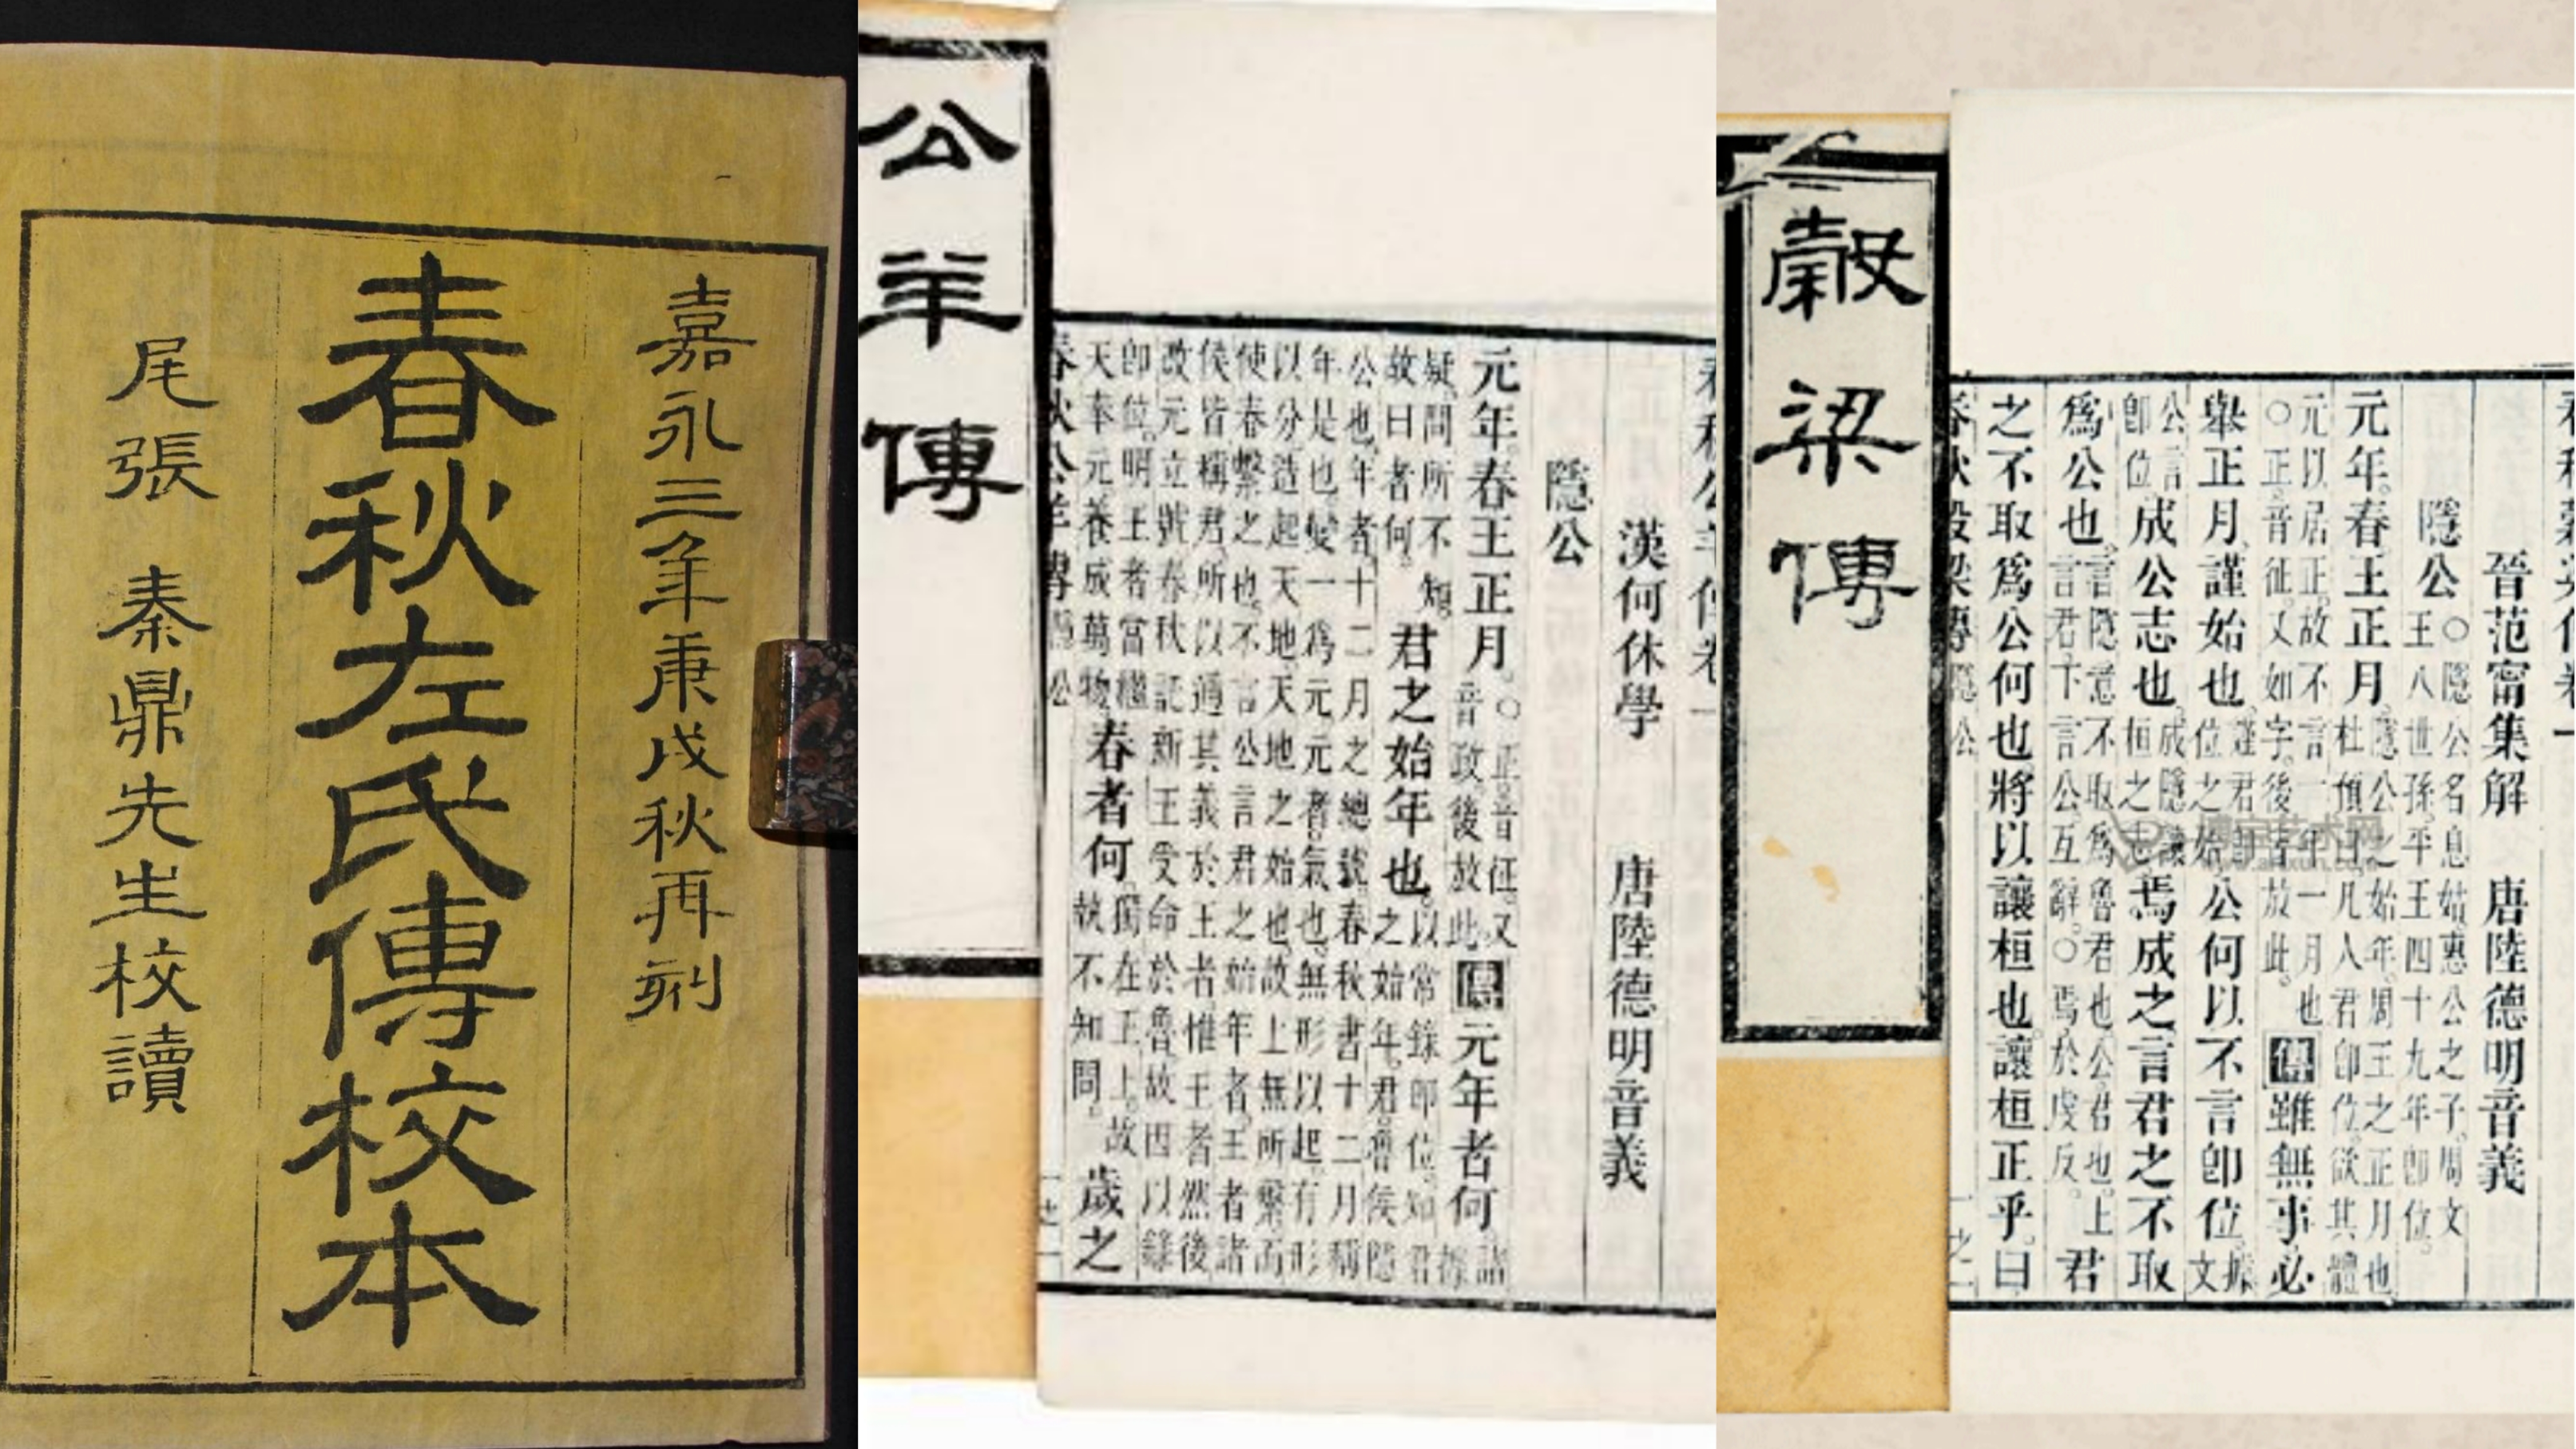 嘉永三年庚戌秋再刻
春秋左氏傳校本
尾張 秦鼎先生校讀
公羊傳
漢何休學 唐陸德明音義
隱公
元年春王正月○正音征又音政後放此傳元年者何諸據
疑問所不知故曰者何君之始年也以常錄即位知君之始年君魯侯隱
公也年者十二月之總號春秋書十二月稱
年是也變一爲元元者氣也無形以起有形
以分造起天地天地之始也故上無所繫而
使春繫之也不言公言君之始年者王者諸
侯皆稱君所以通其義於王者惟王者然後
改元立號春秋託新王受命於魯故因以錄
即位明王者當繼天奉元養成萬物春者何獨在王上故執不知問歲之
春秋公羊傳 隱公
穀梁傳
晉范甯集解 唐陸德明音義
隱公○隱公名息姑惠公之子周文王八世孫平王四十九年即位
元年春王正月隱公之始年周王之正月也杜預曰凡人君即位欲其體
元以居正故不言一年一月也○正音征又如字後皆放此傳雖無事必
舉正月謹始也謹君即位之始公何以不言即位據文
公言即位成公志也成隱讓桓之志焉成之言君之不取
爲公也言隱意不取爲魯君也公君也上言君下言公互辭○焉於虔反君
之不取爲公何也將以讓桓也讓桓正乎曰
春秋穀梁傳 隱公